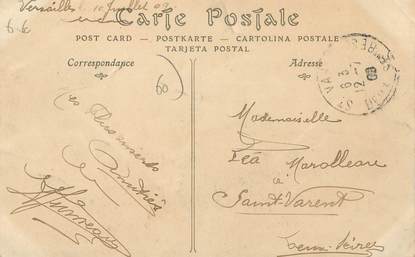 Versailles 10 Juillet 09
6 6
Carte Postale
POST CARD — POSTKARTE — CARTOLINA POSTALE
TARJETA POSTAL
Correspondance
Adresse
60
Mes plus
amitiés
Mademoiselle
Léa Marolleau
à
Saint-Varent
Deux-Sèvres
12 -7
09